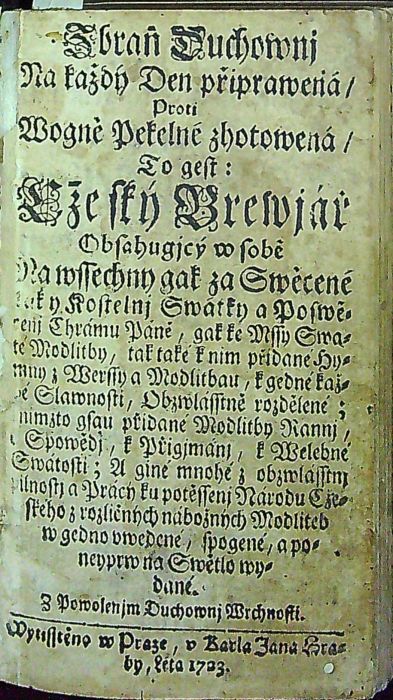 Zbraň Duchownj
Na každý Den připrawená /
Proti
Wogně Pekelné zhotowená /
To gest:
Cžeský Brewjář
Obsahugjcý w sobě
Na wssechny gak za Swěcené
tak y Kostelnj Swátky a Poswě-
cenj Chrámu Páně, gak ke Mssy Swa-
té Modlitby, tak také k nim přidané Hy-
mny z Werssy a Modlitbau, k gedné kaž-
dé Slawnosti, Obzwlásstně rozdělené;
nimžto gsau přidané Modlitby Rannj,
k Spowědi, k Přigjmánj, k Welebné
Swátosti; A giné mnohé z obzwlásstnj
pilnostj a Prácý ku potěssenj Národu Cže-
ského z rozličných nábožných Modliteb
w gedno uwedené, spogené, a po-
neyprw na Swětlo wy-
dané.
Z Powolenjm Duchownj Wrchnosti.
Wytisstěno w Praze, v Karla Jana Hra-
by, Léta 1723.